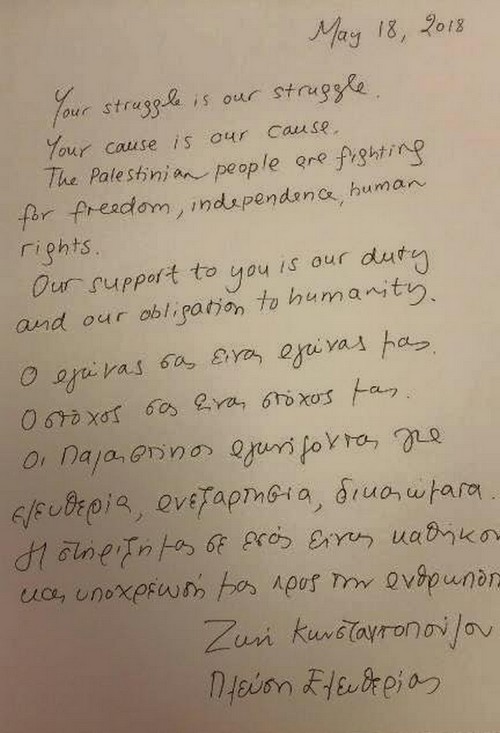 May 18, 2018
Your struggle is our struggle.
Your cause is our cause.
The Palestinian people are fighting
for freedom, independence, human
rights.
Our support to you is our duty
and our obligation to humanity.
Ο αγώνας σας είναι αγώνας μας.
Ο στόχος σας είναι στόχος μας.
Οι Παλαιστίνιοι αγωνίζονται για
ελευθερία, ανεξαρτησία, δικαιώματα.
Η στήριξή μας σε εσάς είναι καθήκον
και υποχρέωσή μας προς την ανθρωπότ
Ζωή Κωνσταντοπούλου
Πλεύση Ελευθερίας